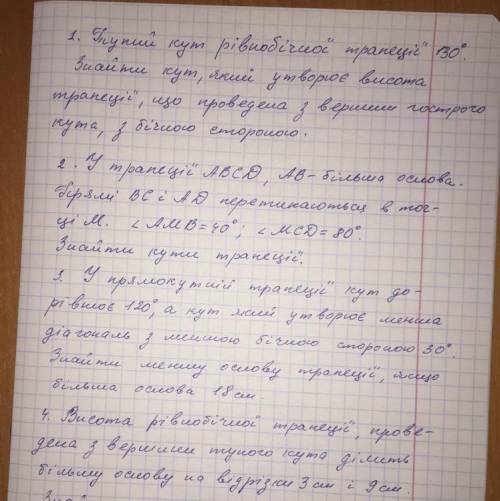 1. Тупий кут рівнобічної трапеції 130°.
Знайти кут, який утворює висота
трапеції, що проведена з вершини гострого
кута, з бічною стороною.
2. У трапеції ABCD, AB - більша основа.
Прямі BC і AD перетинаються в точ-
ці M. ∠AMB = 40°; ∠MCD = 80°.
Знайти кути трапеції.
3. У прямокутній трапеції кут до-
рівнює 120°, а кут який утворює менша
діагональ з меншою бічною стороною 30°.
Знайти меншу основу трапеції, якщо
більша основа 18 см.
4. Висота рівнобічної трапеції, прове-
дена з вершини тупого кута ділить
більшу основу на відрізки 3 см і 9 см.